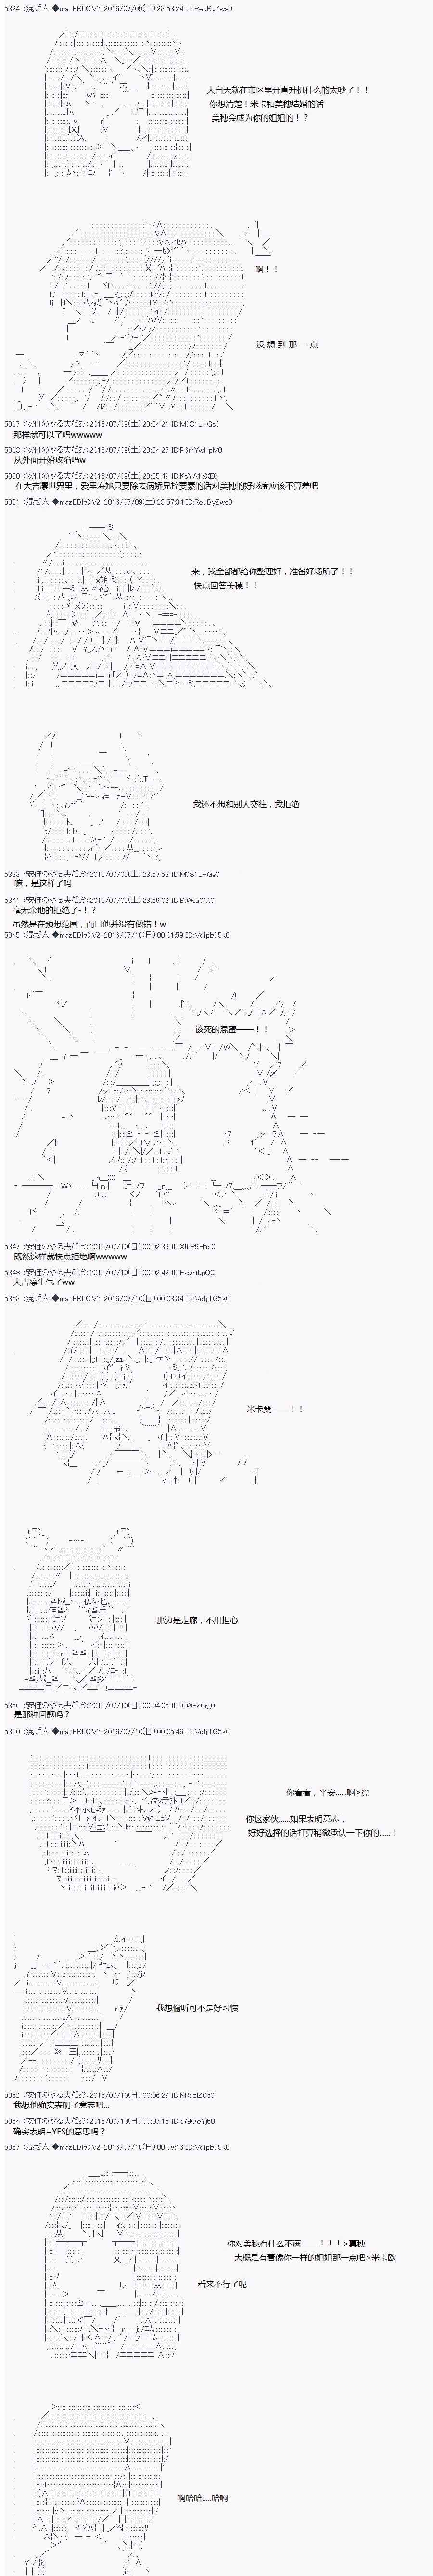 5324 ：混ぜ人 ◆mazEBItO V2：2016/07/09(土) 23:53:24 ID:ReuByZws0
大白天就在市区里开直升机什么的太吵了！！
你想清楚！米卡和美穗结婚的话
美穗会成为你的姐姐的！？
啊！！
没想到那一点
5327 ：安価のやる夫だお：2016/07/09(土) 23:54:21 ID:M0S1LHGs0
那样就可以了吗wwwww
5328 ：安価のやる夫だお：2016/07/09(土) 23:54:27 ID:P6mYwHpM0
从外面开始攻陷吗w
5330 ：安価のやる夫だお：2016/07/09(土) 23:55:49 ID:KsYA1eXE0
在大吉凛世界里，爱里寿她只要除去病娇兄控要素的话对美穗的好感度应该不算差吧
5331 ：混ぜ人 ◆mazEBItO V2：2016/07/09(土) 23:57:34 ID:ReuByZws0
来，我全部都给你整理好，准备好场所了！！
快点回答美穗！！
我还不想和别人交往，我拒绝
5333 ：安価のやる夫だお：2016/07/09(土) 23:57:53 ID:M0S1LHGs0
嘛，是这样了吗
5341 ：安価のやる夫だお：2016/07/09(土) 23:59:02 ID:B.Wsa0MI0
毫无余地的拒绝了-！？
虽然是在预想范围，而且他并没有做错！w
5345 ：混ぜ人 ◆mazEBItO V2：2016/07/10(日) 00:01:59 ID:MdlpbG5k0
该死的混蛋——！！
5347 ：安価のやる夫だお：2016/07/10(日) 00:02:39 ID:XIhR9H5c0
既然这样就快点拒绝啊wwwww
5348 ：安価のやる夫だお：2016/07/10(日) 00:02:42 ID:HcyrtkpQ0
大吉凛生气了ww
5353 ：混ぜ人 ◆mazEBItO V2：2016/07/10(日) 00:03:34 ID:MdlpbG5k0
米卡桑——！！
那边是走廊，不用担心
5356 ：安価のやる夫だお：2016/07/10(日) 00:04:05 ID:9tWEZ0rg0
是那种问题吗？
5360 ：混ぜ人 ◆mazEBItO V2：2016/07/10(日) 00:05:46 ID:MdlpbG5k0
你看看，平安......啊>凛
你这家伙......如果表明意志，
好好选择的话打算稍微承认一下你的......！
我想偷听可不是好习惯
5362 ：安価のやる夫だお：2016/07/10(日) 00:06:29 ID:KRdziZ0c0
我想他确实表明了意志吧...
5364 ：安価のやる夫だお：2016/07/10(日) 00:07:16 ID:e79QeYj60
确实表明=YES的意思吗？
5367 ：混ぜ人 ◆mazEBItO V2：2016/07/10(日) 00:08:16 ID:MdlpbG5k0
你对美穗有什么不满——！！！>真穗
大概是有着像你一样的姐姐那一点吧>米卡欧
看来不行了呢
啊哈哈......哈啊